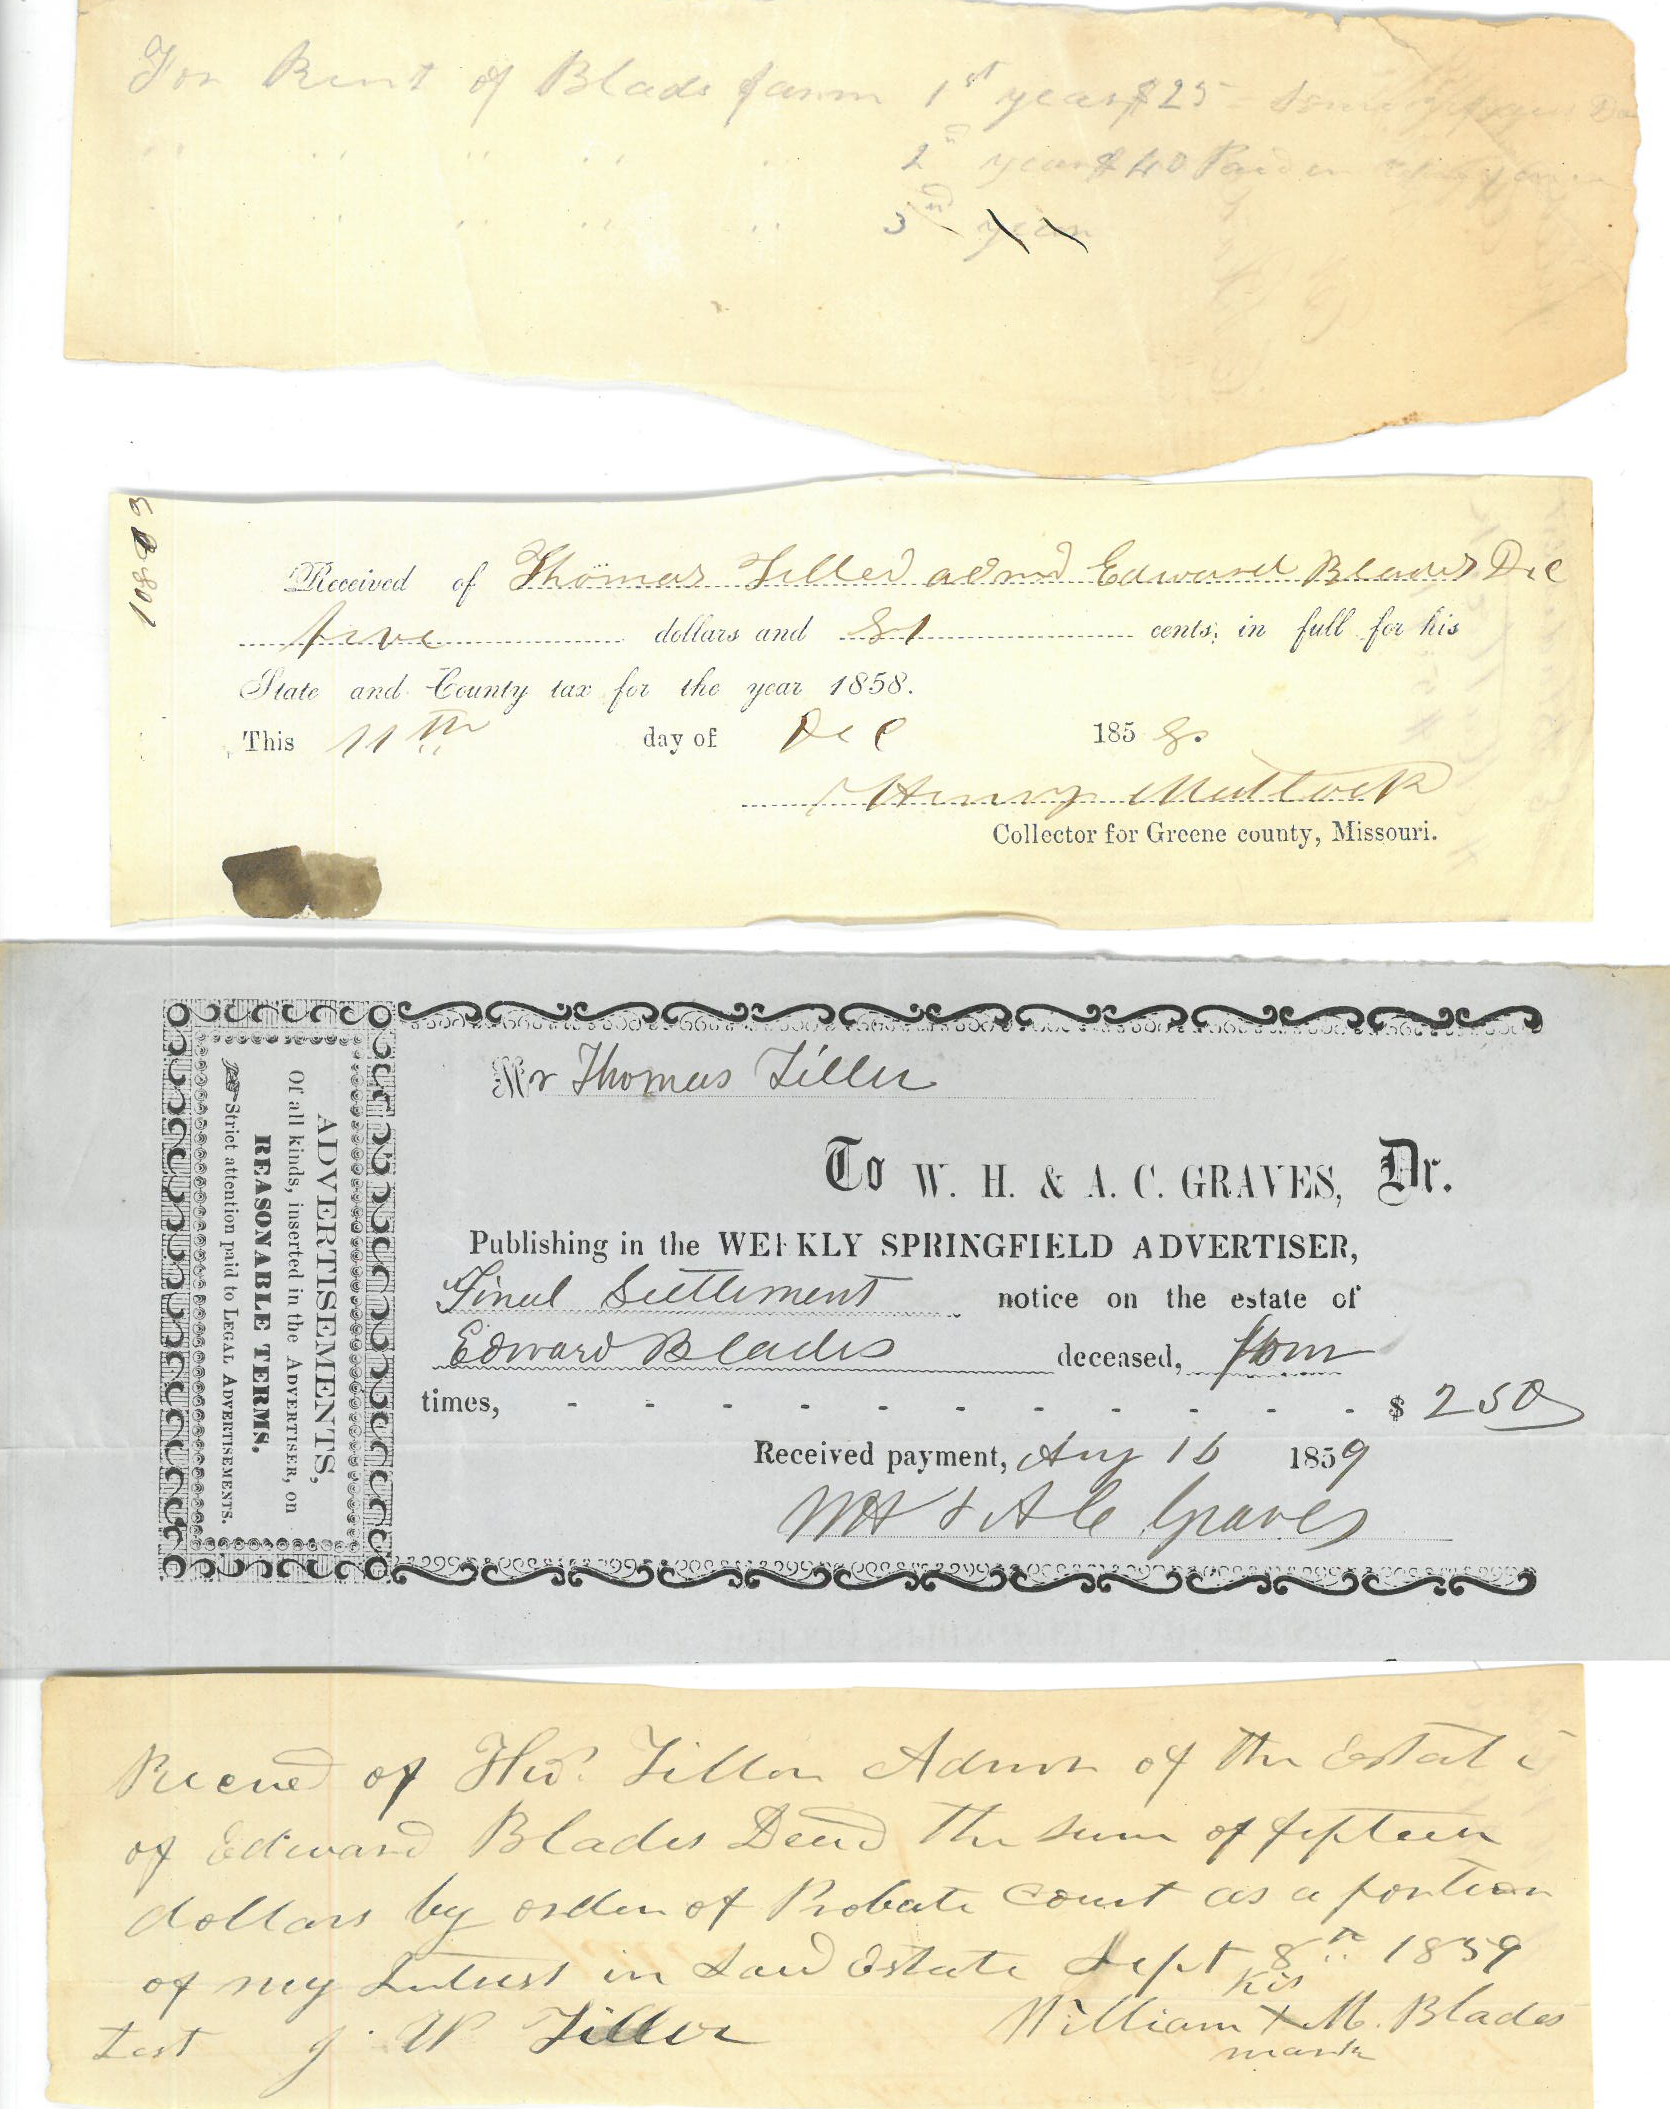 For Rent of Blads farm 1st year $25
" " " " " 2nd year $40 Paid in
" " " " 3rd year
Received of Thomas Tiller admr Edward Blades Dec
five dollars and 81 cents, in full for his
State and County tax for the year 1858.
This 11th day of Dec 1858.
Henry Matlock
Collector for Greene county, Missouri.
ADVERTISEMENTS,
Of all kinds, inserted in the ADVERTISER, on
REASONABLE TERMS.
Strict attention paid to LEGAL ADVERTISEMENTS.
Mr Thomas Tiller
To W. H. & A. C. GRAVES, Dr.
Publishing in the WEEKLY SPRINGFIELD ADVERTISER,
Final Settlement notice on the estate of
Edward Blades deceased, four
times, - - - - - - - - - - - $ 2 50
Received payment, Aug 16 1859
WH & A C Graves
Recived of Thos. Tiller Admr of the Estate
of Edward Blades Decd the sum of fifteen
dollars by order of Probate Court as a portion
of my Intrest in Said Estate Sept 8th 1859
his
Test J. W Tiller William X M. Blades
mark